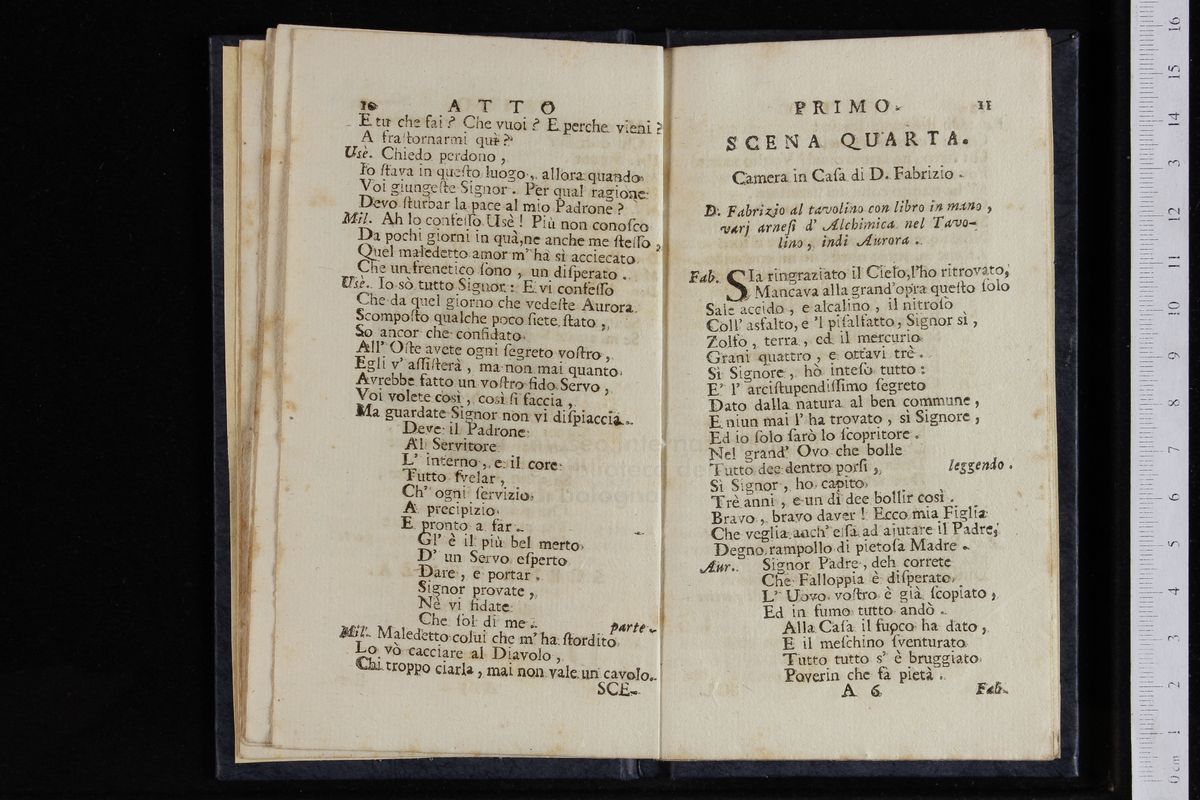 10 ATTO
E tu che fai? Che vuoi? E perche vieni?
A frastornarmi quì?
Usè. Chiedo perdono,
Io ſtava in queſto luogo, allora quando
Voi giungeſte Signor. Per qual ragione
Devo ſturbar la pace al mio Padrone?
Mil. Ah lo confeſſo Usè! Più non conoſco
Da pochi giorni in quà, ne anche me ſteſſo,
Quel maledetto amor m'ha sì acciecato
Che un frenetico ſono, un diſperato.
Usè. Io sò tutto Signor: E vi confeſſo
Che da quel giorno che vedeſte Aurora
Scompoſto qualche poco ſiete ſtato,
So ancor che confidato
All' Oſte avete ogni ſegreto voſtro,
Egli v' aſſiſterà, ma non mai quanto
Avrebbe fatto un voſtro fido Servo,
Voi volete così, così ſi faccia,
Ma guardate Signor non vi diſpiaccia.
Deve il Padrone
Al Servitore
L' interno, e il core
Tutto ſvelar,
Ch' ogni ſervizio
A precipizio
E pronto a far.
Gl' è il più bel merto
D' un Servo eſperto
Dare, e portar.
Signor provate,
Nè vi fidate
Che ſol di me. parte.
Mil. Maledetto colui che m' ha ſtordito
Lo vò cacciare al Diavolo,
Chi troppo ciarla, mai non vale un cavolo.
SCE-
PRIMO. 11
SCENA QUARTA.
Camera in Caſa di D. Fabrizio.
D. Fabrizio al tavolino con libro in mano,
varj arneſi d' Alchimica nel Tavo-
lino, indi Aurora.
Fab. SIa ringraziato il Cielo, l'ho ritrovato,
Mancava alla grand'opra queſto ſolo
Sale accido, e alcalino, il nitroſo
Coll' asfalto, e 'l piſalfatto, Signor sì,
Zolfo, terra, ed il mercurio
Grani quattro, e ottavi trè.
Sì Signore, hò inteſo tutto:
E' l' arciſtupendiſſimo ſegreto
Dato dalla natura al ben commune,
E niun mai l' ha trovato, sì Signore,
Ed io ſolo farò lo ſcopritore.
Nel grand' Ovo che bolle
Tutto dee dentro porſi, leggendo.
Sì Signor, ho capito
Trè anni, e un dì dee bollir così.
Bravo, bravo daver! Ecco mia Figlia
Che veglia anch' eſſa ad ajutare il Padre,
Degno rampollo di pietoſa Madre.
Aur. Signor Padre, deh correte
Che Falloppia è diſperato,
L' Uovo voſtro è già ſcopiato,
Ed in fumo tutto andò.
Alla Caſa il fuoco ha dato,
E il meſchino ſventurato
Tutto tutto s' è bruggiato
Poverin che fà pietà.
A 6 Fab.